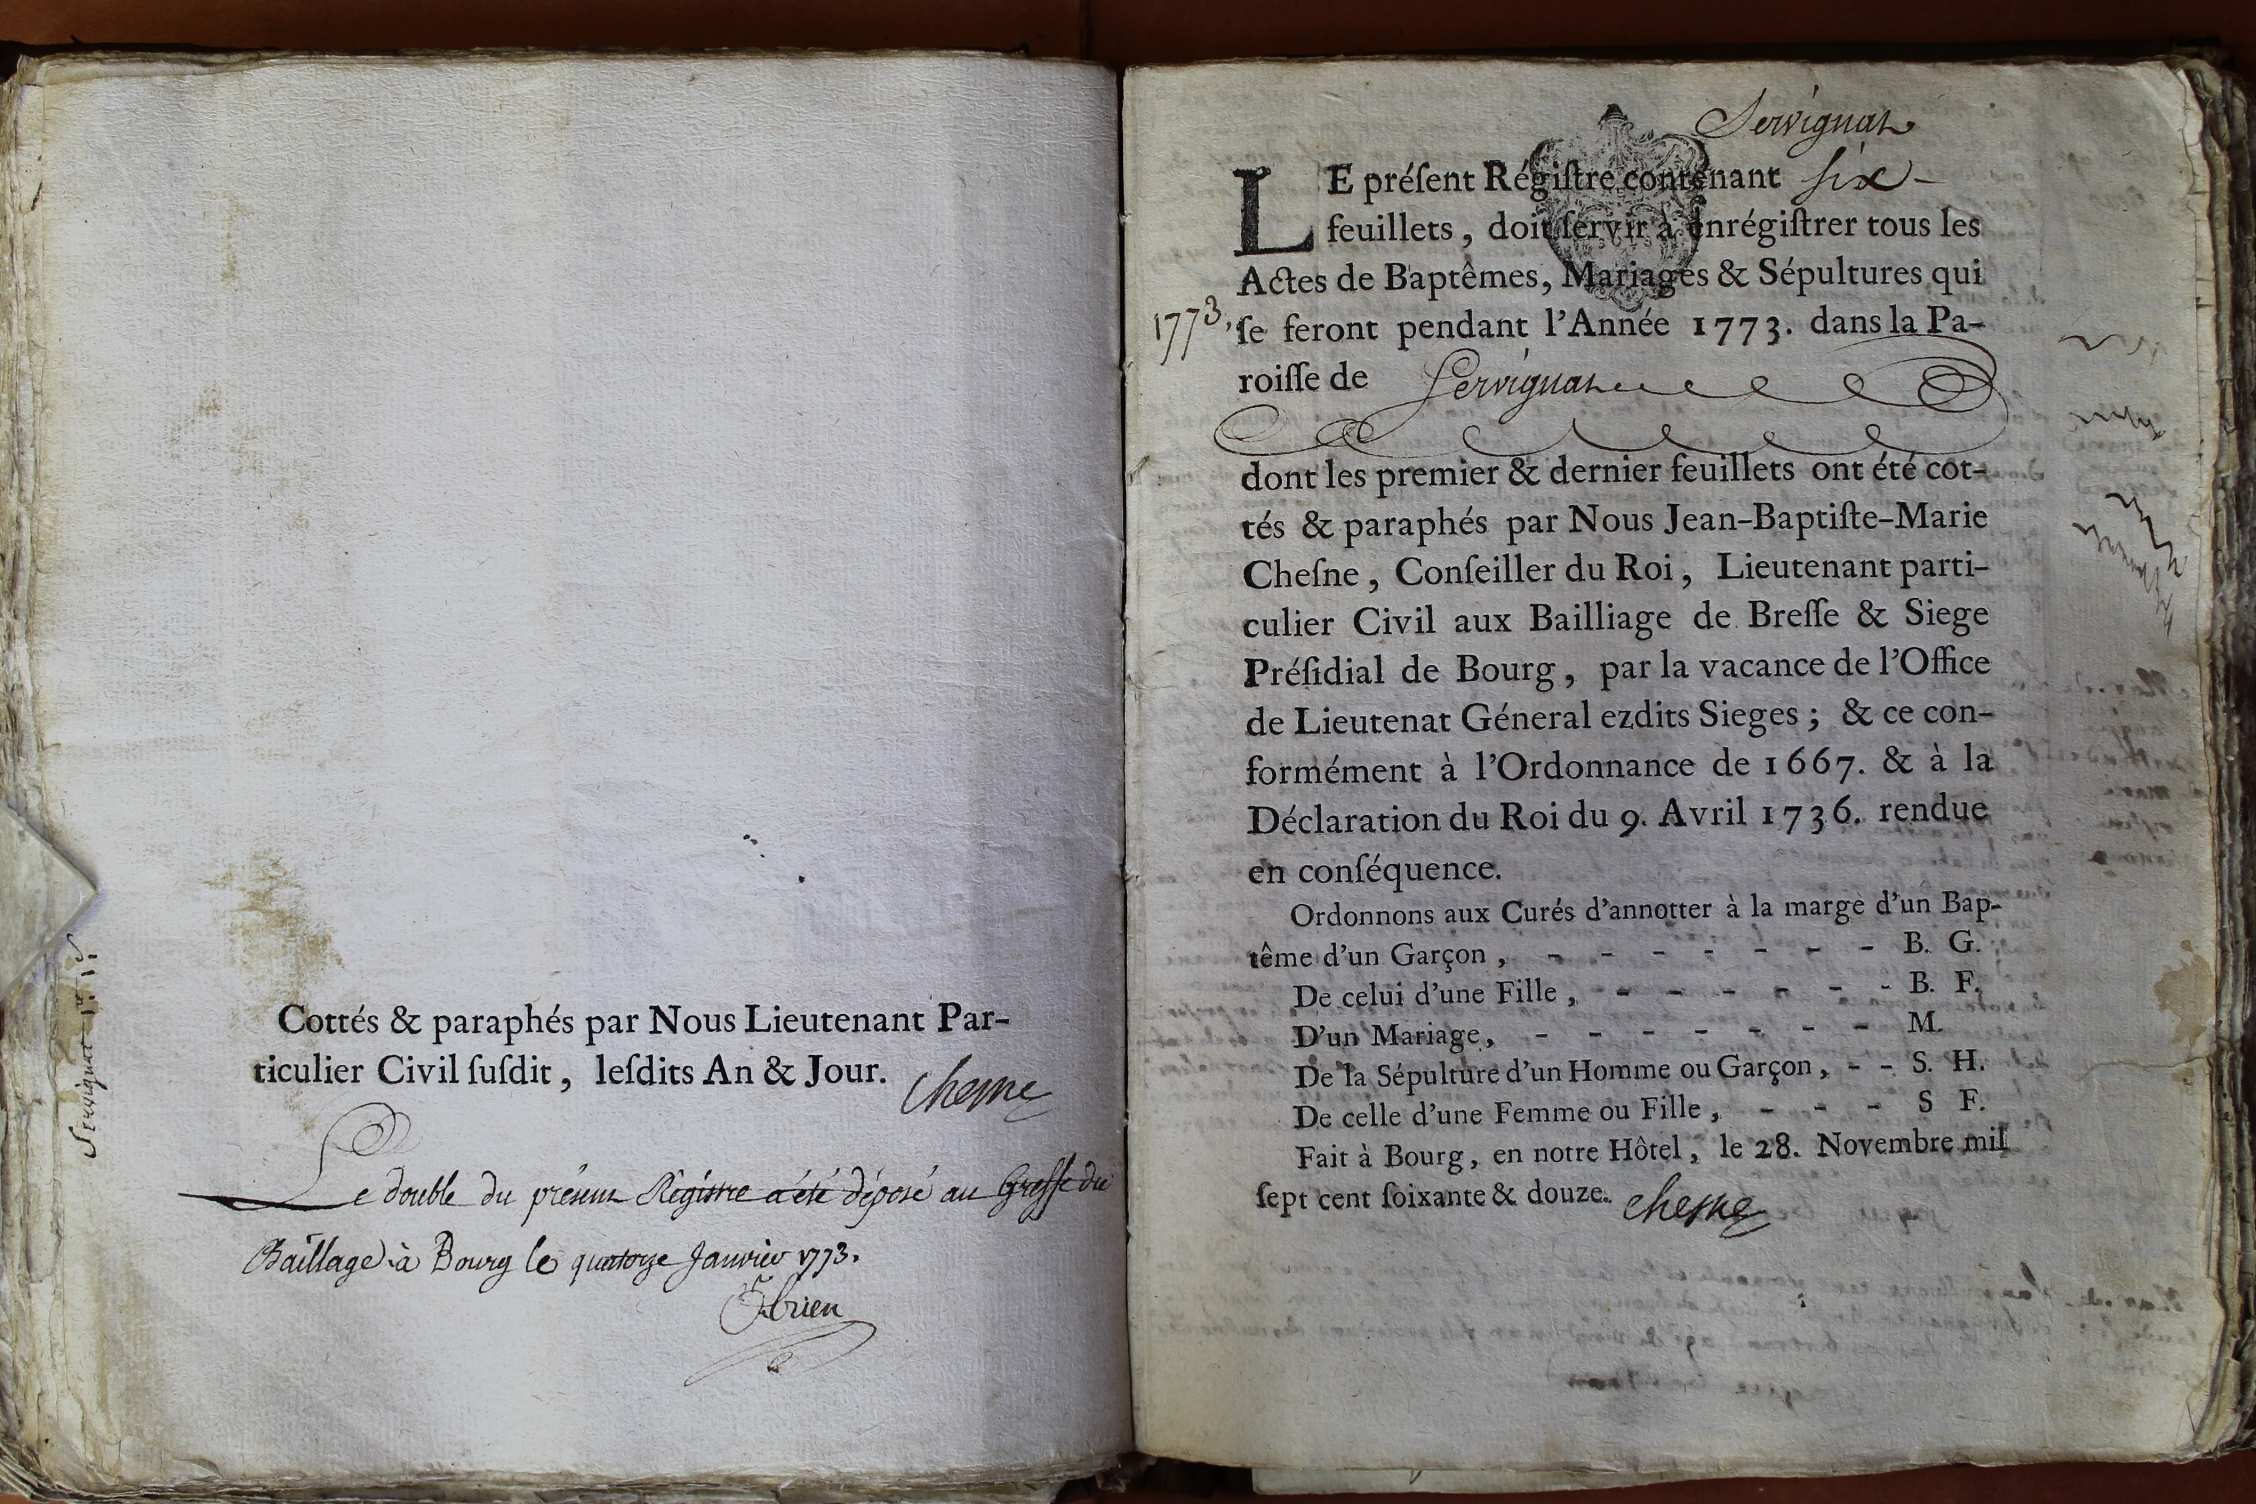 Cottés & paraphés par Nous Lieutenant Par-
ticulier Civil ſuſdit, leſdits An & Jour.
Chesne
Le double du présent Régistre a été déposé au Greffe du
Baillage à Bourg le quatorze Janvier 1773.
Servignat
Servignat
LE préſent Régiſtre contenant six
feuillets, doit ſervir à enrégiſtrer tous les
Actes de Baptêmes, Mariages & Sépultures qui
1773, ſe feront pendant l'Année 1773. dans la Pa-
roiſſe de Servignat
dont les premier & dernier feuillets ont été cot-
tés & paraphés par Nous Jean-Baptiſte-Marie
Cheſne, Conſeiller du Roi, Lieutenant parti-
culier Civil aux Bailliage de Breſſe & Siege
Préſidial de Bourg, par la vacance de l'Office
de Lieutenat Géneral ezdits Sieges; & ce con-
formément à l'Ordonnance de 1667. & à la
Déclaration du Roi du 9. Avril 1736. rendue
en conſéquence.
Ordonnons aux Curés d'annotter à la marge d'un Bap-
tême d'un Garçon, - - - - - - - B. G.
De celui d'une Fille, - - - - - - B. F.
D'un Mariage, - - - - - - - M.
De la Sépulture d'un Homme ou Garçon, - - S. H.
De celle d'une Femme ou Fille, - - - S F.
Fait à Bourg, en notre Hôtel, le 28. Novembre mil
ſept cent ſoixante & douze. Chesne